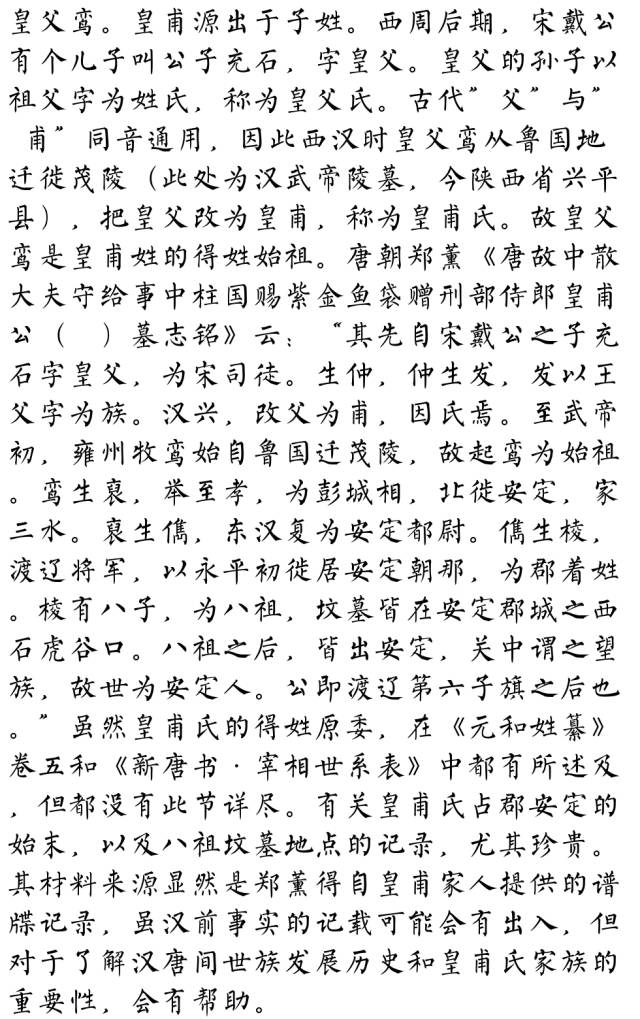 皇父鸾。皇甫源出于子姓。西周后期，宋戴公
有个儿子叫公子充石，字皇父。皇父的孙子以
祖父字为姓氏，称为皇父氏。古代”父”与”
甫”同音通用，因此西汉时皇父鸾从鲁国地
迁徙茂陵（此处为汉武帝陵墓，今陕西省兴平
县），把皇父改为皇甫，称为皇甫氏。故皇父
鸾是皇甫姓的得姓始祖。唐朝郑薰《唐故中散
大夫守给事中柱国赐紫金鱼袋赠刑部侍郎皇甫
公（　）墓志铭》云：“其先自宋戴公之子充
石字皇父，为宋司徒。生仲，仲生发，发以王
父字为族。汉兴，改父为甫，因氏焉。至武帝
初，雍州牧鸾始自鲁国迁茂陵，故起鸾为始祖
。鸾生裒，举至孝，为彭城相，北徙安定，家
三水。裒生儁，东汉复为安定都尉。儁生棱，
渡辽将军，以永平初徙居安定朝那，为郡着姓
。棱有八子，为八祖，坟墓皆在安定郡城之西
石虎谷口。八祖之后，皆出安定，关中谓之望
族，故世为安定人。公即渡辽第六子旗之后也
。”虽然皇甫氏的得姓原委，在《元和姓纂》
卷五和《新唐书·宰相世系表》中都有所述及
，但都没有此节详尽。有关皇甫氏占郡安定的
始末，以及八祖坟墓地点的记录，尤其珍贵。
其材料来源显然是郑薰得自皇甫家人提供的谱
牒记录，虽汉前事实的记载可能会有出入，但
对于了解汉唐间世族发展历史和皇甫氏家族的
重要性，会有帮助。